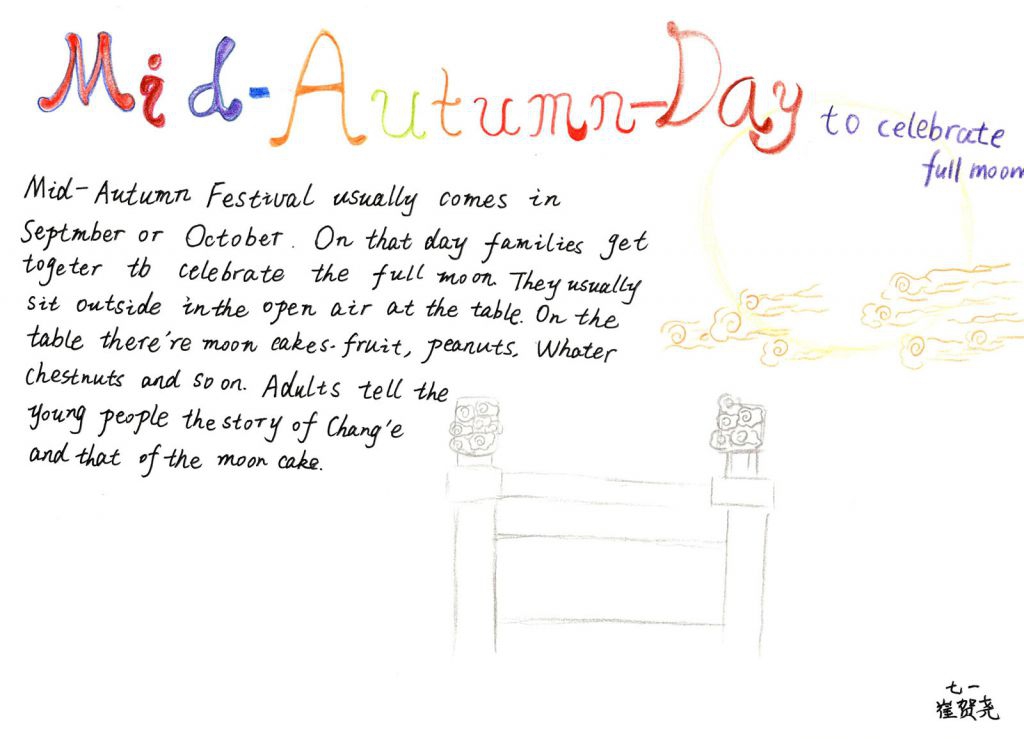 Mid-Autumn-Day to celebrate
full moon
Mid-Autumn Festival usually comes in
Septmber or October. On that day families get
togeter to celebrate the full moon. They usually
sit outside in the open air at the table. On the
table there're moon cakes. fruit, peanuts. Whater
chestnuts and so on. Adults tell the
young people the story of Chang'e
and that of the moon cake.
七一
崔贺尧